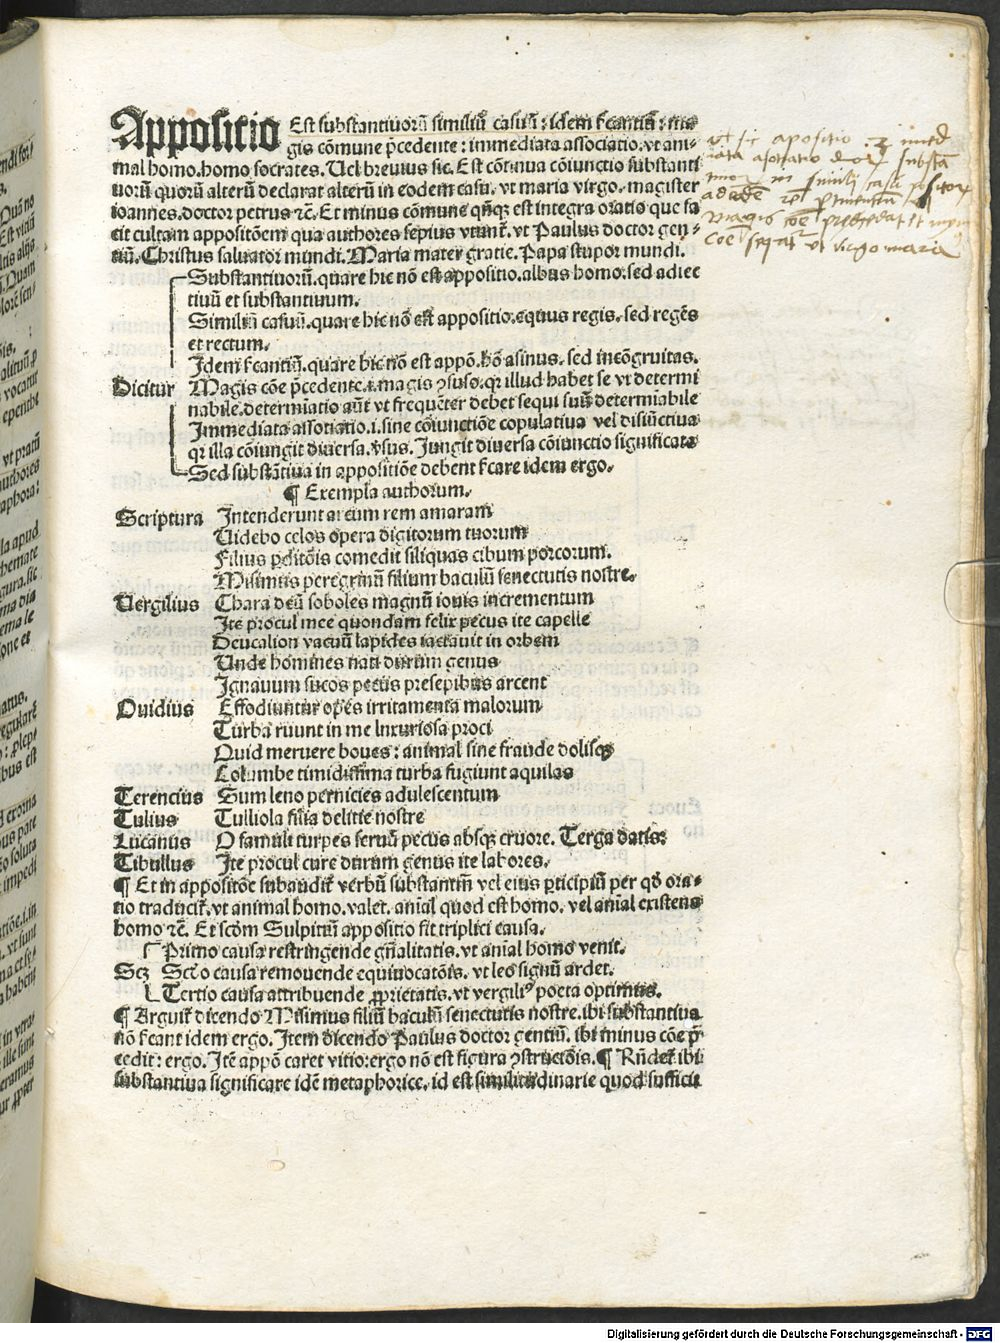 Appositio Est substantiuorū similiū casuū: idem ſcantiū: ma
gis cōmune p̄cedente: immediata associatio. vt ani-
mal homo. homo socrates. Uel breuius sic. Est cōtinua cōiunctio substanti
uorū quorū alterū declarat alterū in eodem casu. vt maria virgo. magister
ioannes. doctor petrus ⁊c. Et minus cōmune qn̄qꝫ est integra oratis que fa
cit cultam appositōem qua authores sepius vtunt̄. vt Paulus doctor gen-
tiū. Christus saluator mundi. Maria mater gratie. Papa stupor mundi.
Substantiuorū. quare hic nō est appositio. albus homo. sed adiec
tiuū et substantiuum.
Similiū casuū. quare hic nō est appositio. equus regis. sed regēs
et rectum.
Idem ſcantiū. quare hic nō est appō. hō asinus. sed incōgruitas.
Dicitur Magis cōe p̄cedente. i. magis ꝯfuso. qꝛ illud habet se vt determi
nabile. determiatio aūt vt frequēter debet sequi suū determiabile
Immediata assotiatio. i. sine cōiunctiōe copulatiua vel disiūctiua
qꝛ illa cōiungit diuersa. v̄sus. Jungit diuersa cōiunctio significata
Sed substātiua in appositiōe debent ſcare idem ergo.
¶ Exempla authorum.
Scriptura Intenderunt arcum rem amaram
Uidebo celos opera digitorum tuorum
Filius ꝑditōis comedit siliquas cibum porcorum.
Misimus peregrinū filium baculū senectutis nostre.
Uergilius Chara deū soboles magnū iouis incrementum
Ite procul mee quondam felix pecus ite capelle
Deucalion vacuū lapides iactauit in orbem
Unde homines nati durum genus
Ignauum fucos pecus presepibus arcent
Ouidius Effodiuntur opes irritamenta malorum
Turba ruunt in me luxuriosa proci
Quid meruere boues: animal sine fraude dolisqꝫ
Columbe timidissima turba fugiunt aquilas
Terencius Sum leno pernicies adulescentum
Tulius Tulliola filia delitie nostre
Lucanus O famuli turpes seruū pecus absqꝫ cruore. Terga datis:
Tibullus Ite procul cure durum genus ite labores.
¶ Et in appositōe subaudit̄ verbū substantiū vel eius ꝑticipiū per qd̄ ora-
tio traducit̄. vt animal homo. valet. aniāl quod est homo. vel aniāl existens
homo ⁊c. Et scd̄m Sulpitiū appositio fit triplici causa.
Primo causa restringende gn̄alitatis. vt aniāl homo venit.
Scꝫ Scd̄o causa remouende equiuocatōis. vt leo signū ardet.
Tertio causa attribuende ꝓprietatis. vt vergiliꝰ poeta optimus.
¶ Arguit̄ dicendo Misimus filiū baculū senectutis nostre. ibi substantiua
nō ſcant idem ergo. Item dicendo Paulus doctor gentiū. ibi minus cōe p̄
cedit: ergo. Itē appō caret vitio: ergo nō est figura ꝯstructōis. ¶ Rn̄det̄ ibi
substantiua significare idē metaphorice. id est similitudinarie quod sufficit
Digitalisierung gefördert durch die Deutsche Forschungsgemeinschaft - DFG